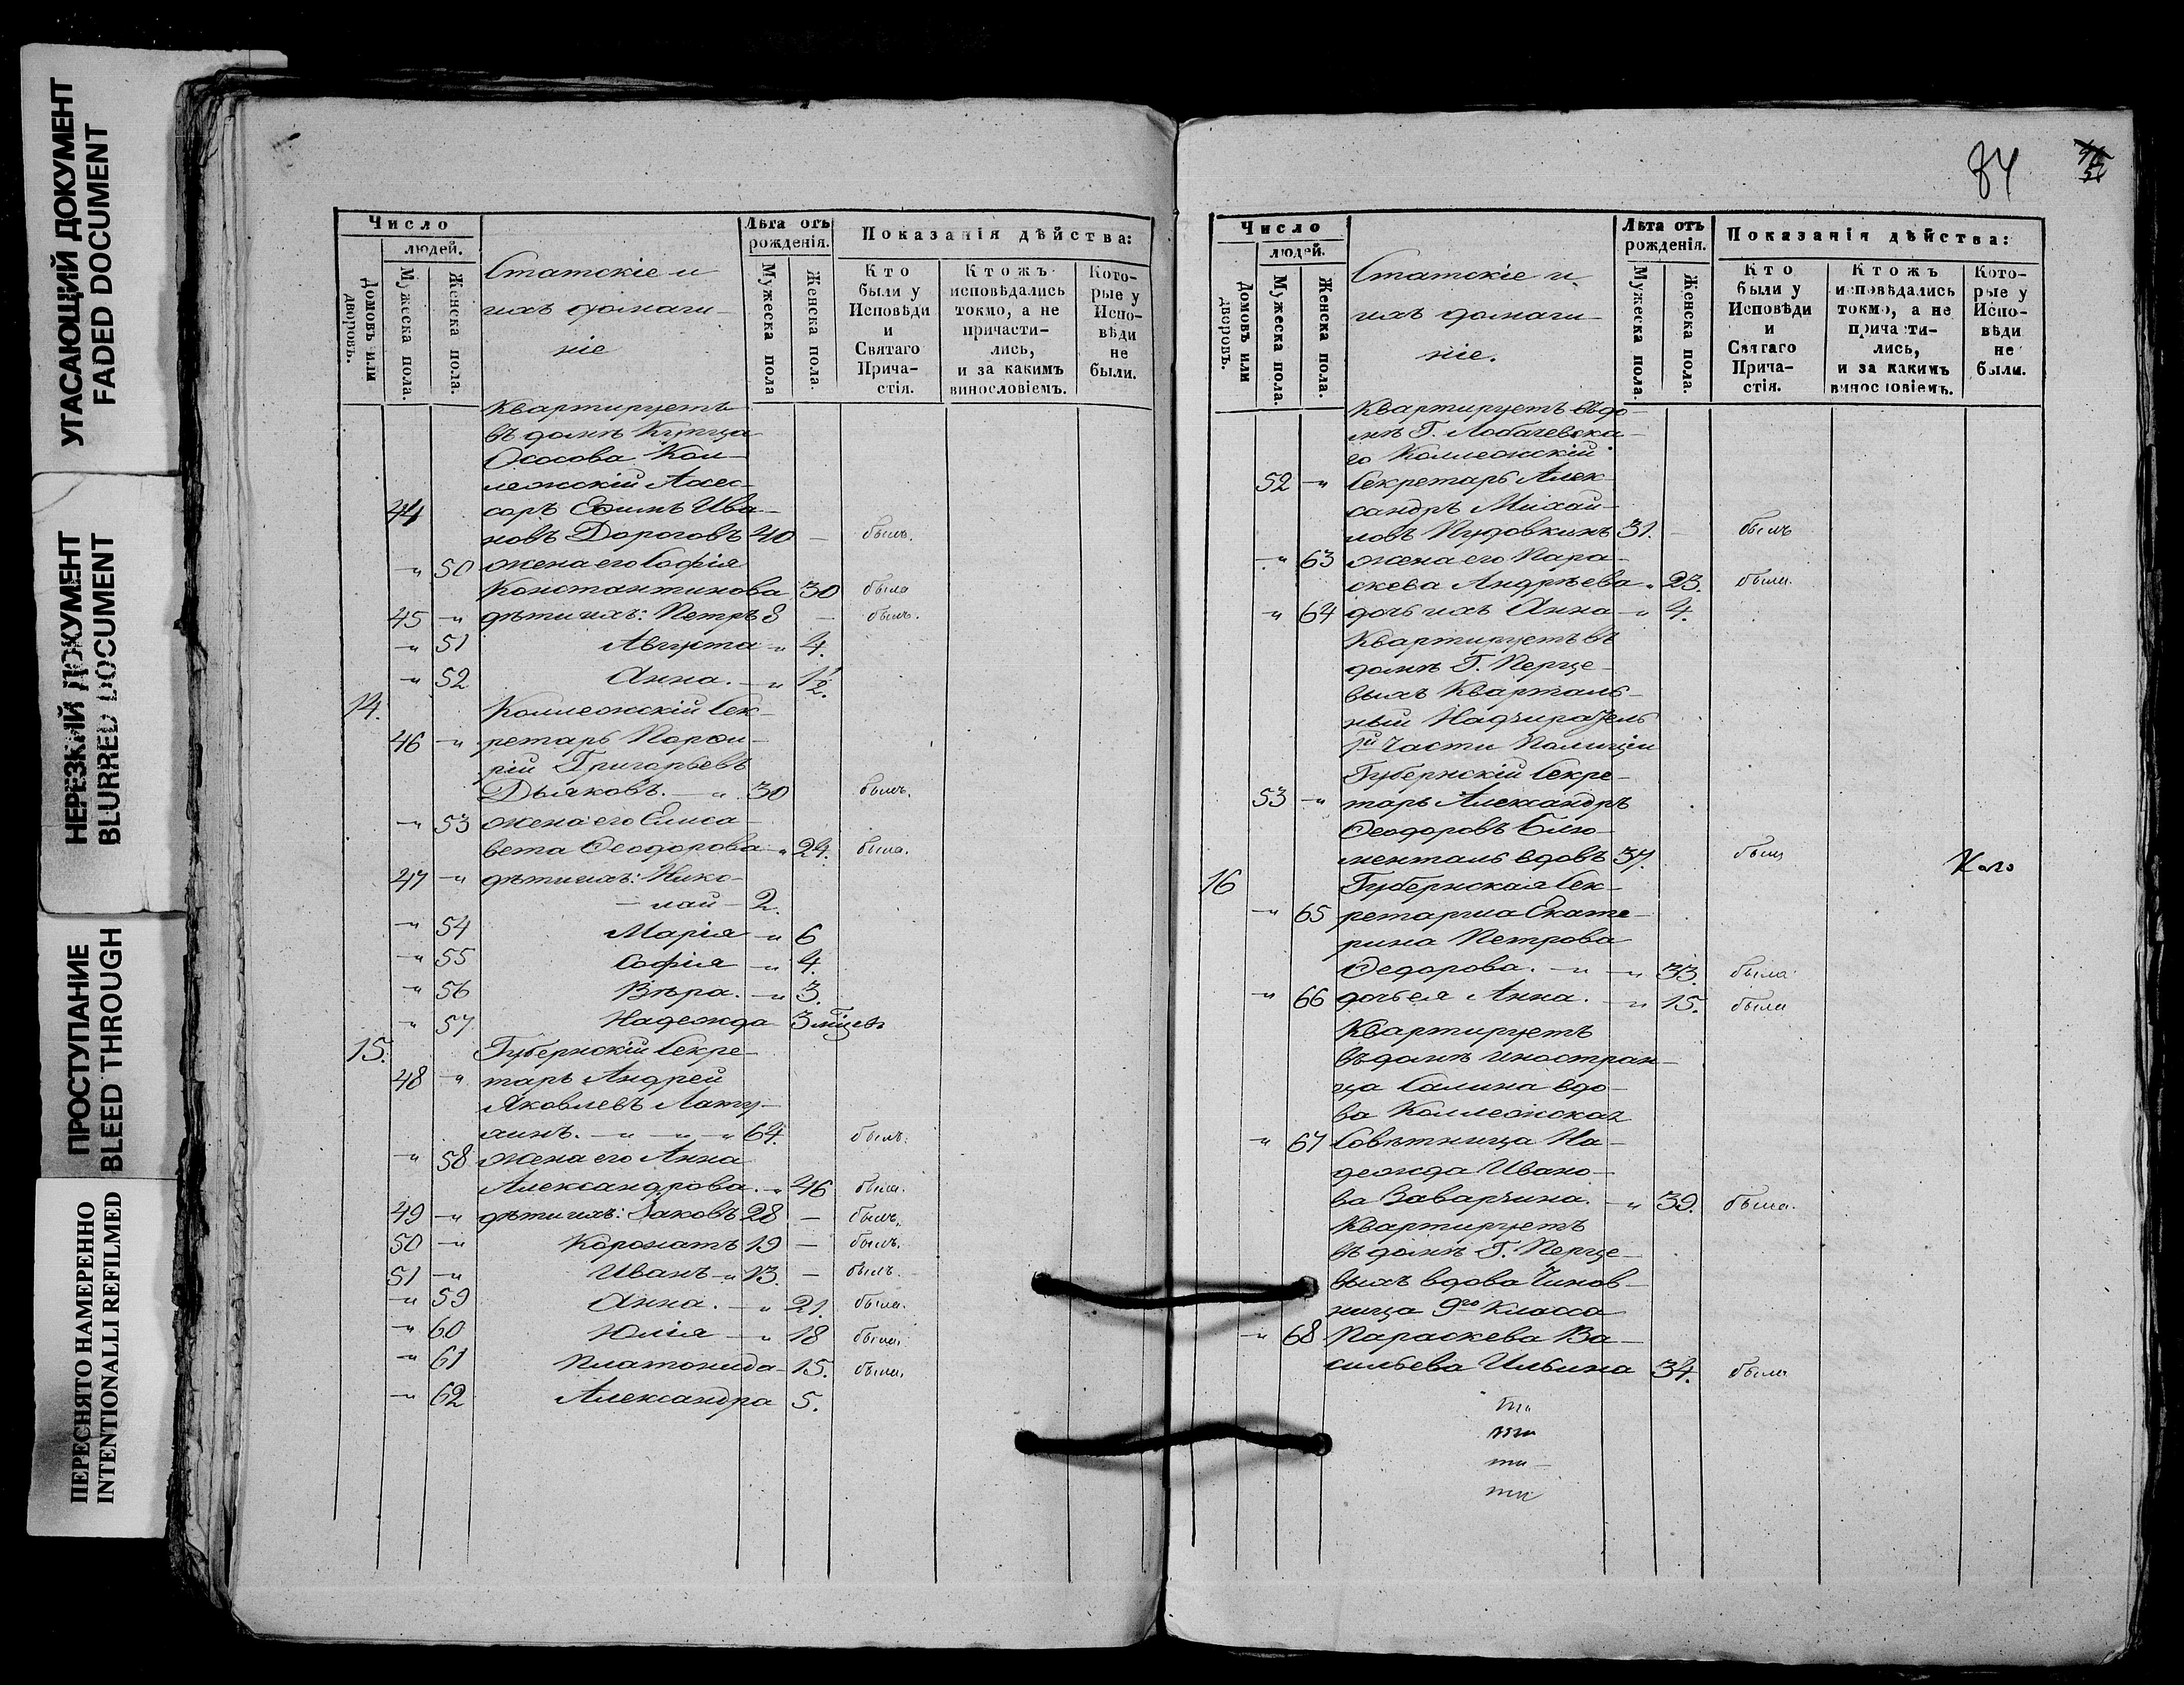 УГАСАЮЩИЙ ДОКУМЕНТ
FADED DOCUMENT
НЕРЕЗКИЙ ДОКУМЕНТ
BLURRED DOCUMENT
ПРОСТУПАНИЕ
BLEED THROUGH
ПЕРЕСНЯТО НАМЕРЕННО
INTENTIONALLI REFILMED
Число
людей.
Домовъ или дворовъ.
Мужеска пола.
Женска пола.
Статскіе и
ихъ домаш-
ніе
Лѣта отъ
рожденія.
Мужеска пола
Женска пола.
Показанія дѣйства:
Кто
были у
Исповѣди
и
Святаго
Прича-
стія.
Ктожъ
исповѣдались
токмо, а не
причасти-
лись,
и за какимъ
винословіемъ.
Кото-
рые у
Испо-
вѣди
не
были.
Квартируетъ
въ домѣ Купца
Ососова Кол-
лежскій Асес-
44 соръ Ефимъ Ива-
новъ Дороговъ 40 — былъ.
-"- 50 жена его Софія
Константинова 30 была
45 -"- дѣти ихъ: Петръ 8 — былъ.
-"- 51 Августа -"- 4.
-"- 52 Анна. -"- 1/2.
14. Коллежскій Сек-
46 -"- ретарь Порфи-
рій Григорьевъ
Дьяковъ. -"- 30 былъ.
-"- 53 жена его Елиса-
вета Ѳеодорова -"- 24. была.
47 -"- дѣти ихъ: Нико-
лай — 2.
-"- 54 Марія -"- 6
-"- 55 Софія -"- 4.
-"- 56 Вѣра. -"- 3.
-"- 57 Надежда 3 мѣсцевъ
15. Губернскій Секре-
48 -"- тарь Андрей
Яковлевъ
-"- 64. былъ.
-"- 58 жена его Анна
Александрова. -"- 46 была.
49 -"- дѣти ихъ: Іаковъ 28 — былъ.
50 -"- Коронатъ 19 — былъ.
51 -"- Иванъ -"- 13. — былъ.
-"- 59 Анна. -"- 21. была.
-"- 60 Юлія -"- 18 была.
-"- 61 Платонида 15. была.
-"- 62 Александра 5.
84
Число
людей.
Домовъ или дворовъ.
Мужеска пола.
Женска пола.
Статскіе и
ихъ домаш-
ніе.
Лѣта отъ
рожденія.
Мужеска пола
Женска пола.
Показанія дѣйства:
Кто
были у
Исповѣди
и
Святаго
Прича-
стія.
Ктожъ
исповѣдались
токмо, а не
причасти-
лись,
и за какимъ
винословіемъ.
Кото-
рые у
Испо-
вѣди
не
были.
Квартируетъ въ до-
мѣ Г. Лобачевска-
го Коллежскій
52 -"- Секретарь Алек-
сандръ Михай-
ловъ Пудовкинъ 31. — былъ
-"- 63 жена его Пара-
скева Андрѣева -"- 23. была.
-"- 64 дочь ихъ Анна -"- 4.
Квартируетъ въ
домѣ Г. Перце-
выхъ Кварталь-
ный Надзиратель
части Полиціи
Губернскій Секре-
53 -"- тарь Александръ
Ѳеодоровъ Блю-
менталь вдовъ 37. былъ
16 Губернская Сек-
-"- 65 ретарша Екате-
рина Петрова
Ѳедорова. -"- -"- 33. была.
-"- 66 дочь ея Анна. -"- 15. была
Квартируетъ
въ домѣ иностран-
ца Салина вдо-
ва Коллежская
-"- 67 Совѣтница На-
дежда Ивано-
ва Заварзина. -"- 39. была.
Квартируетъ
въ домѣ Г. Перце-
выхъ вдова Чинов-
ница 9го Класса
-"- 68 Параскева Ва-
сильева Ильина 34. была